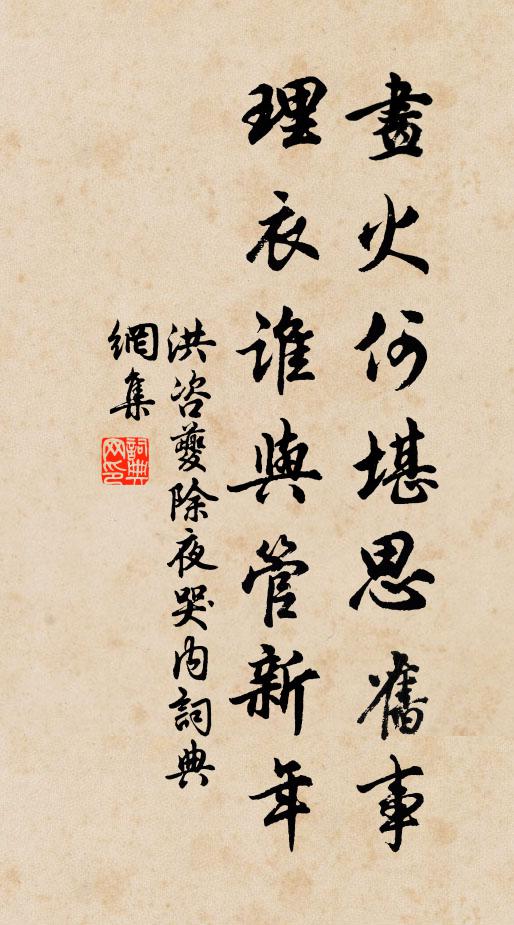 畫火何堪思舊事
理衣誰與管新年
洪咨夔除夜哭内詞典
網集
詞典
网印